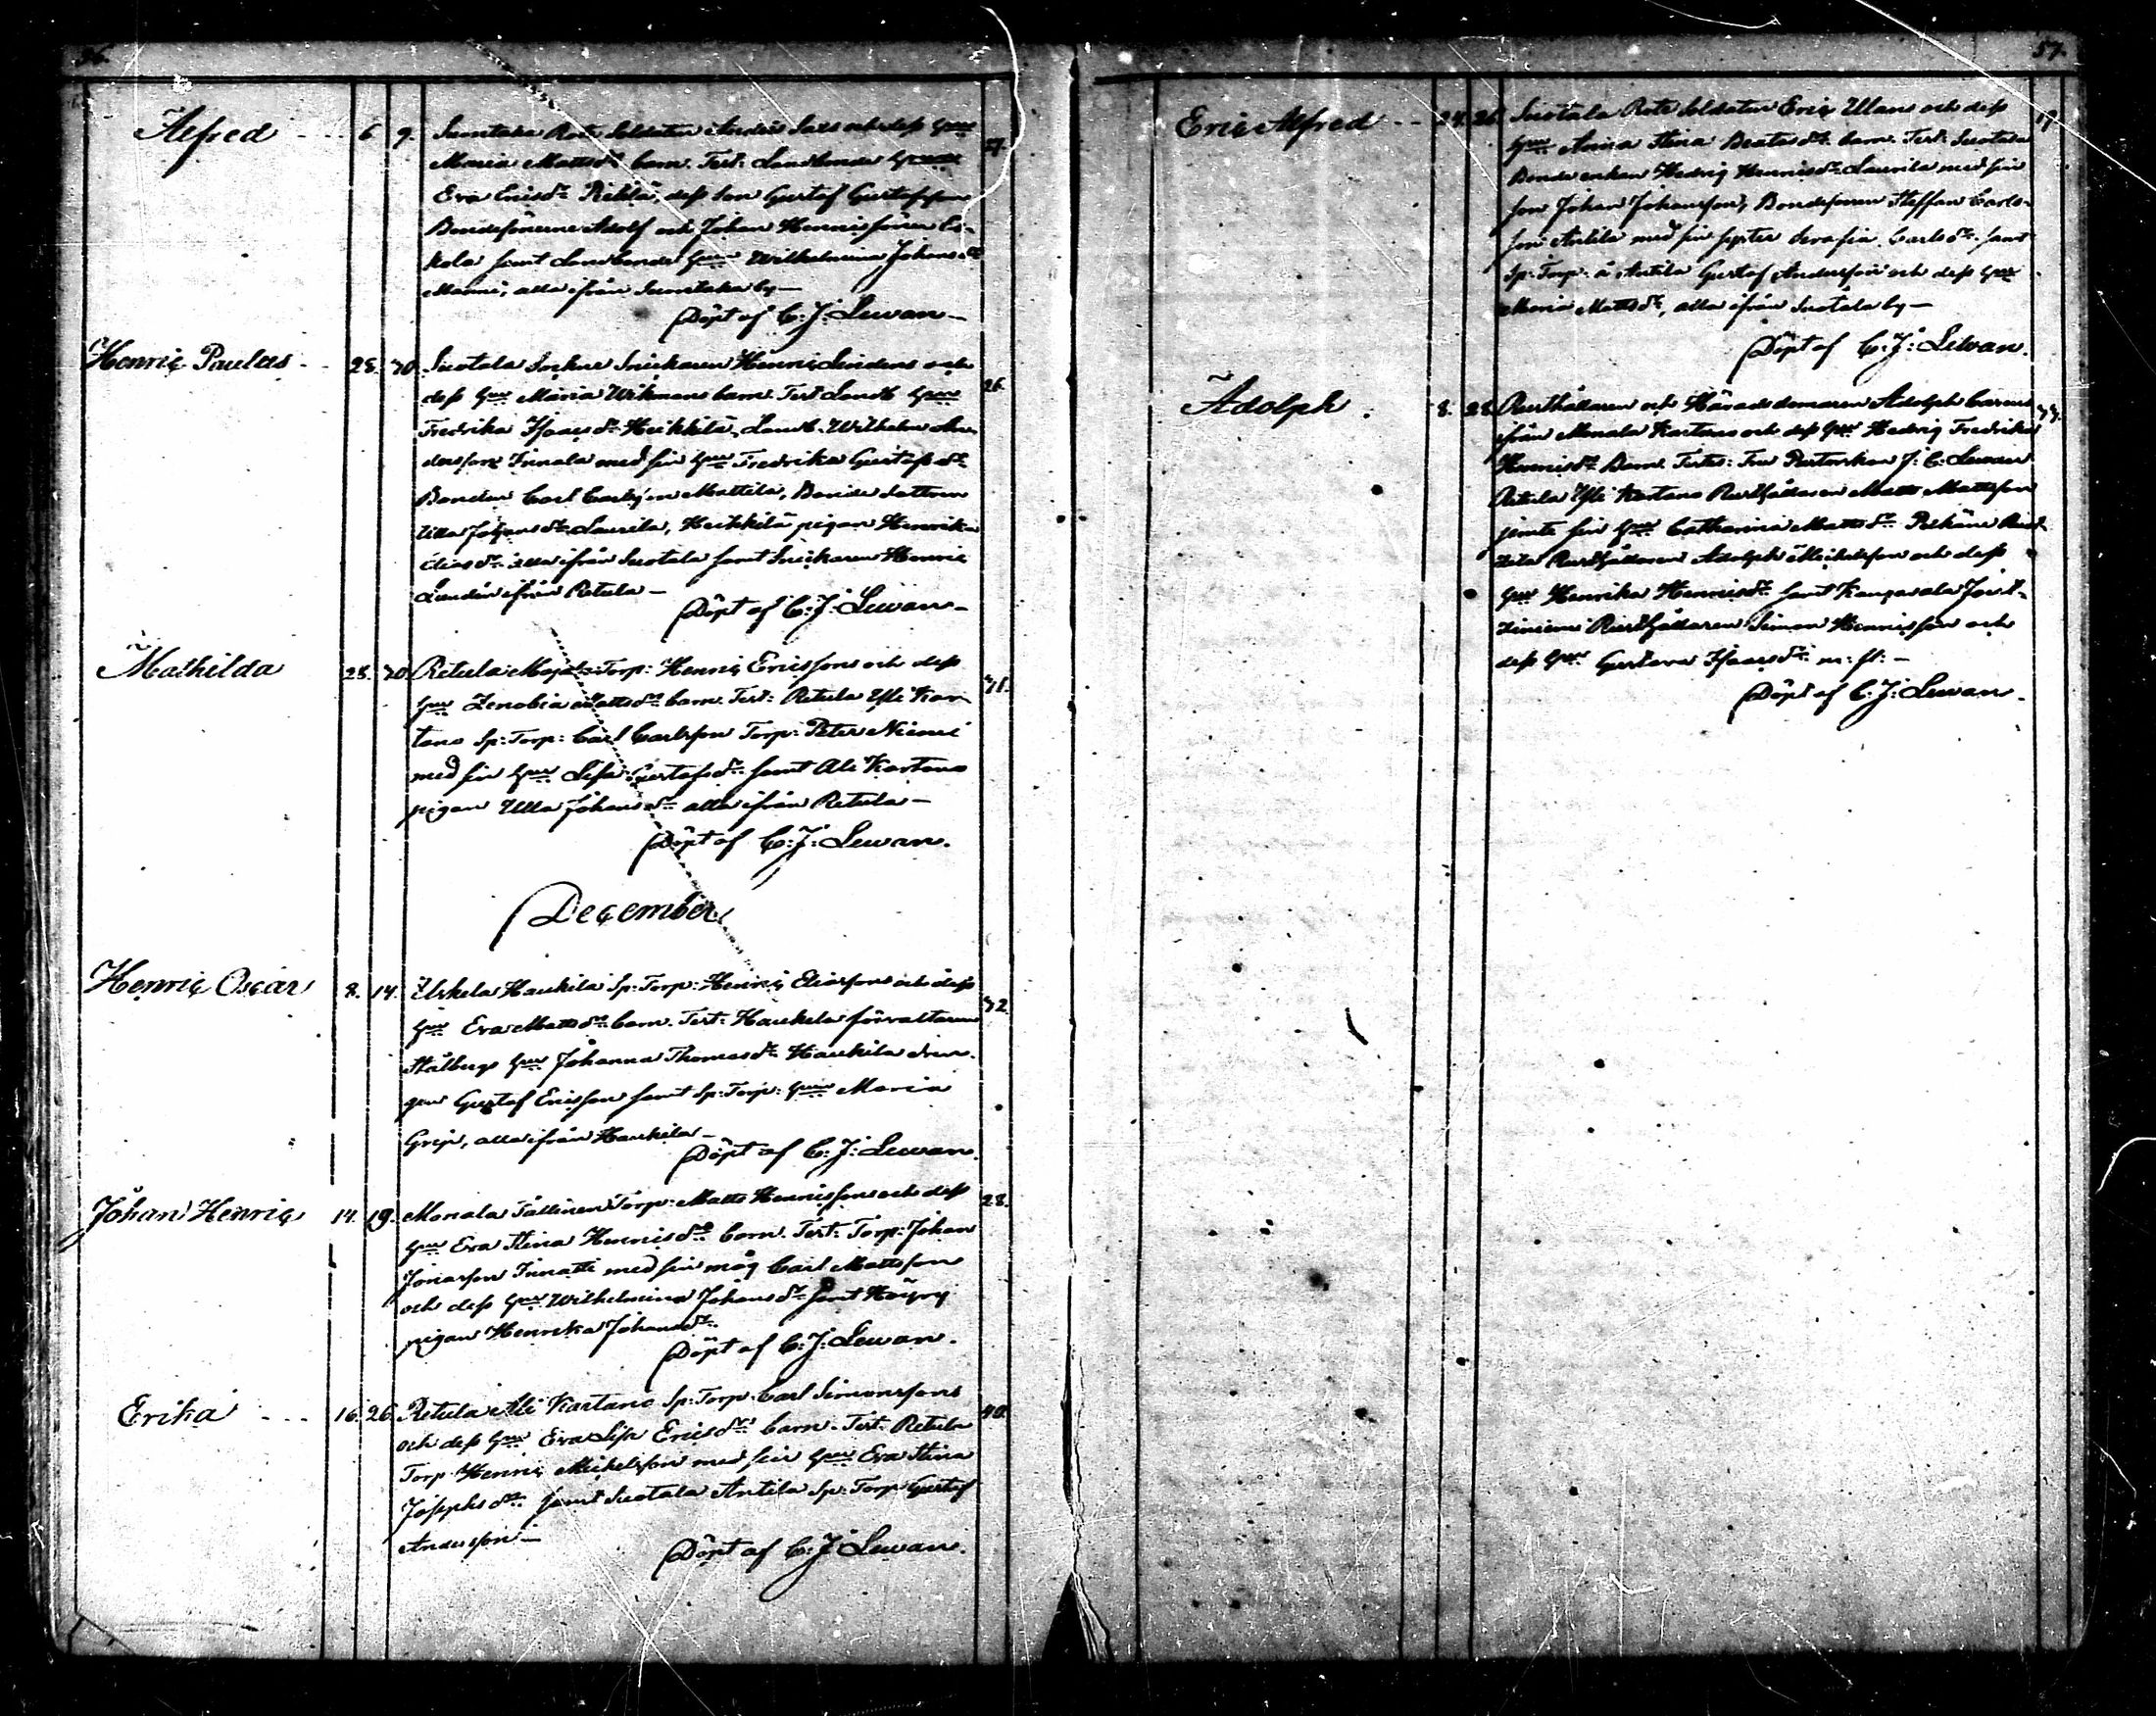 56.
Alfred 6 9. Sumtaka Rote Soldaten Anders Sals och dess hu
Maria Mattsdr barn. Test: Landbonde 27.
Eva Ericsdr Rekilä, dess son Gustaf Gustafsson
Bondesönerne Adolf och Johan Henricssöner Es-
kola samt Landbonde hu Wilhelmina Johansdr
Manni, alla ifrån Sumtaka by —
Döpt af C: J: Lewan —
Henric Paulus 28. 30. Suotala Sockne Snickaren Henric Lindens och
dess hu Maria Wikmans barn. Test Landb hu 26.
Fredrika Isaacsdr Heikkilä, Landb. Wilhelm An-
dersson Innala med sin hu Fredrika Gustafsdr
Bonden Carl Carlsson Mattila, Bonde dottren
Ulla Johansdr Laurila, Heikkilä pigan Henrika
Eliasdr alla ifrån Suotala samt Snickaren Henric
Lindén ifrån Retula —
Döpt af C: J: Lewan —
Mathilda 28. 30. Retula Torp: Henric Ericssons och dess
hu Zenobia Mattsdr barn. Test: Retula Yli Kar- 31.
tano Sp: Torp: Carl Carlsson Torp: Peter Niemi
med sin hu Lisa Gustafsdr samt Ali Kartano
pigan Ulla Johansdr alla ifrån Retula —
Döpt af C: J: Lewan.
December
Henric Oscar 8. 14. Uskela Haukila Sp: Torp: Henric Eliassons och dess
hu Eva Mattsdr barn. Test: Haukila förvaltaren 32.
Stålbergs hu Johanna Thomasdr Haukila drän-
gen Gustaf Ericsson samt Sp: Torp: hu Maria
Grip, alla ifrån Haukila —
Döpt af C: J: Lewan.
Johan Henric 14. 19. Monala Tallinen Torp: Matts Henricssons och dess 28.
hu Eva Stina Henricsdr barn. Test: Torp: Johan
Jonasson Innatti med sin måg Carl Mattsson
och dess hu Wilhelmina Johansdr samt
pigan Henrika Johansdr
Döpt af C: J: Lewan.
Erika 16. 26. Retula Ali Kartano Sp: Torp: Carl Simonssons 40.
och dess hu Eva Lisa Ericsdr barn. Test: Retula
Torp Henric Michelsson med sin hu Eva Stina
Josephsdr samt Suotala Antila Sp: Torp Gustaf
Andersson —
Döpt af C: J: Lewan.
57.
Eric Alfred 24. 26. Suotala Rote Soldaten Eric Ulans och dess
hu Anna Stina barn. Test: Suotala
Bonde enkan Hedvig Henricsdr Laurila med sin
son Johan Johansson, Bondesonen Steffan Carls-
son Antila med sin syster Serafia Carlsdr samt
Sp: Torp: å Antila Gustaf Andersson och dess hu
Maria Mattsdr, alla ifrån Suotala by —
Döpt af C: J: Lewan.
Adolph 8. 28. Rusthållaren och Häradsdomaren Adolph
ifrån Monala Kartano och dess hu Hedvig Fredrika
Henricsdr Barn. Testes: Fru Pastorskan J: C: Lewan
Retula Yli Kartano Rusthållaren Matts Mattsson
jemte sin hu Catharina Mattsdr
Rusthållaren Adolph Michelsson och dess
hu Henrika Henricsdr samt Kangasala
Rusthållaren Simon Henricsson och
dess hu Gustava Isaacsdr m: fl: —
Döpt af C: J: Lewan.